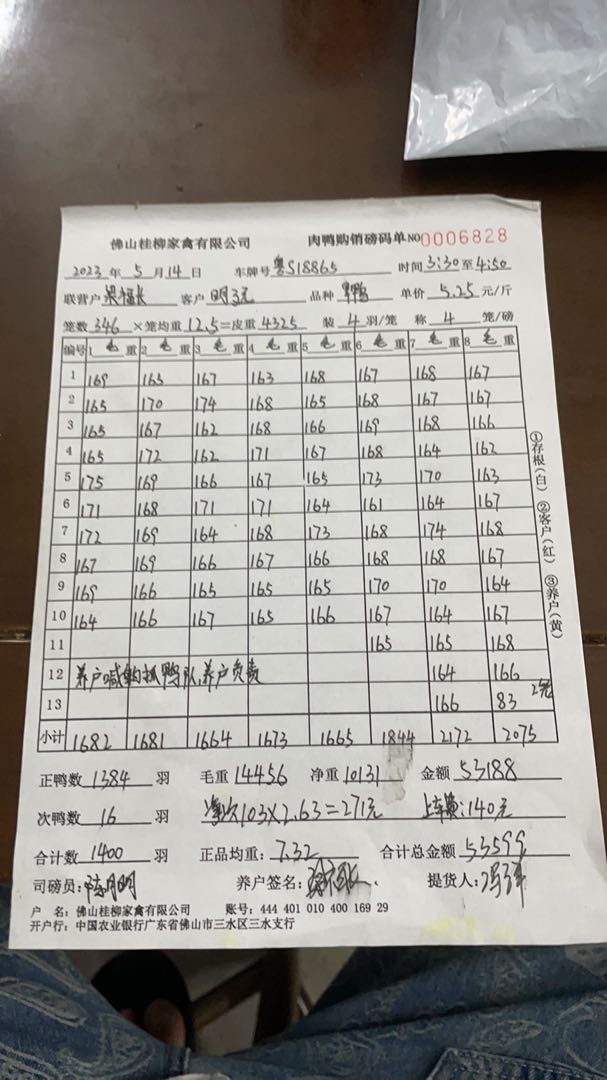 佛山桂柳家禽有限公司 肉鸭购销磅码单 NO 0006828
2023 年 5 月 14 日 车牌号 粤S18865 时间 3:30 至 4:50
联营户 梁福长 客户 品种 单价 5.25 元/斤
笼数 346 ×笼均重 12.5 =皮重 4325 装 4 羽/笼 称 4 笼/磅
编号 1 毛 重 2 毛 重 3 毛 重 4 毛 重 5 毛 重 6 毛 重 7 毛 重 8 毛 重
1 169 165 167 163 168 167 168 167
2 165 170 174 168 165 168 167 167
3 165 167 162 168 166 169 168 166
4 165 172 162 171 167 168 164 162
5 175 169 166 167 165 173 170 163
6 171 168 171 171 164 161 164 167
7 172 169 164 168 173 168 174 168
8 167 169 166 167 166 168 168 167
9 169 166 165 165 165 170 170 164
10 164 166 167 165 166 167 164 167
11 165 165 168
12 养户喊的抓鸭队,养户负责 164 166
13 166 83 2笼
小计 1682 1681 1664 1673 1665 1844 2172 2075
正鸭数 1384 羽 毛重 14456 净重 10131 金额 53188
次鸭数 16 羽 103×2.63=271元 上车费:140元
合计数 1400 羽 正品均重: 7.32 合计总金额 53599
司磅员: 养户签名: 提货人:
户 名: 佛山桂柳家禽有限公司 账号: 444 401 010 400 169 29
开户行: 中国农业银行广东省佛山市三水区三水支行
①存根(白) ②客户(红) ③养户(黄)